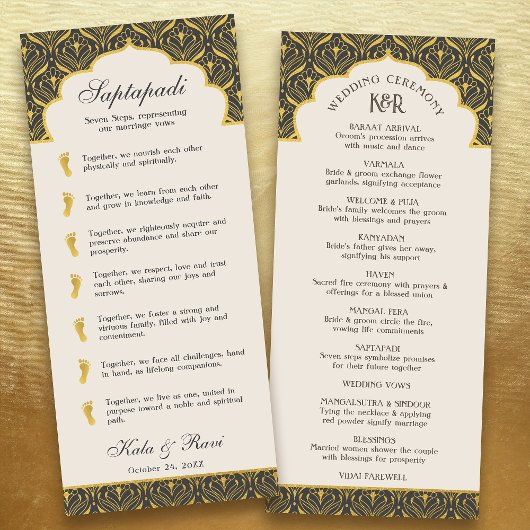 Saptapadi
Seven Steps, representing
our marriage vows
Together, we nourish each other
physically and spiritually.
Together, we learn from each other
and grow in knowledge and faith.
Together, we righteously acquire and
preserve abundance and share our
prosperity.
Together, we respect, love and trust
each other, sharing our joys and
sorrows.
Together, we foster a strong and
virtuous family, filled with joy and
contentment.
Together, we face all challenges, hand
in hand, as lifelong companions.
Together, we live as one, united in
purpose toward a noble and spiritual
path.
Kala & Ravi
October 24, 20XX
WEDDING CEREMONY
K&R
BARAAT ARRIVAL
Groom's procession arrives
with music and dance
VARMALA
Bride & groom exchange flower
garlands, signifying acceptance
WELCOME & PUJA
Bride's family welcomes the groom
with blessings and prayers
KANYADAN
Bride's father gives her away,
signifying his support
HAVEN
Sacred fire ceremony with prayers &
offerings for a blessed union
MANGAL FERA
Bride & groom circle the fire,
vowing life commitments
SAPTAPADI
Seven steps symbolize promises
for their future together
WEDDING VOWS
MANGALSUTRA & SINDOOR
Tying the necklace & applying
red powder signify marriage
BLESSINGS
Married women shower the couple
with blessings for prosperity
VIDAI FAREWELL